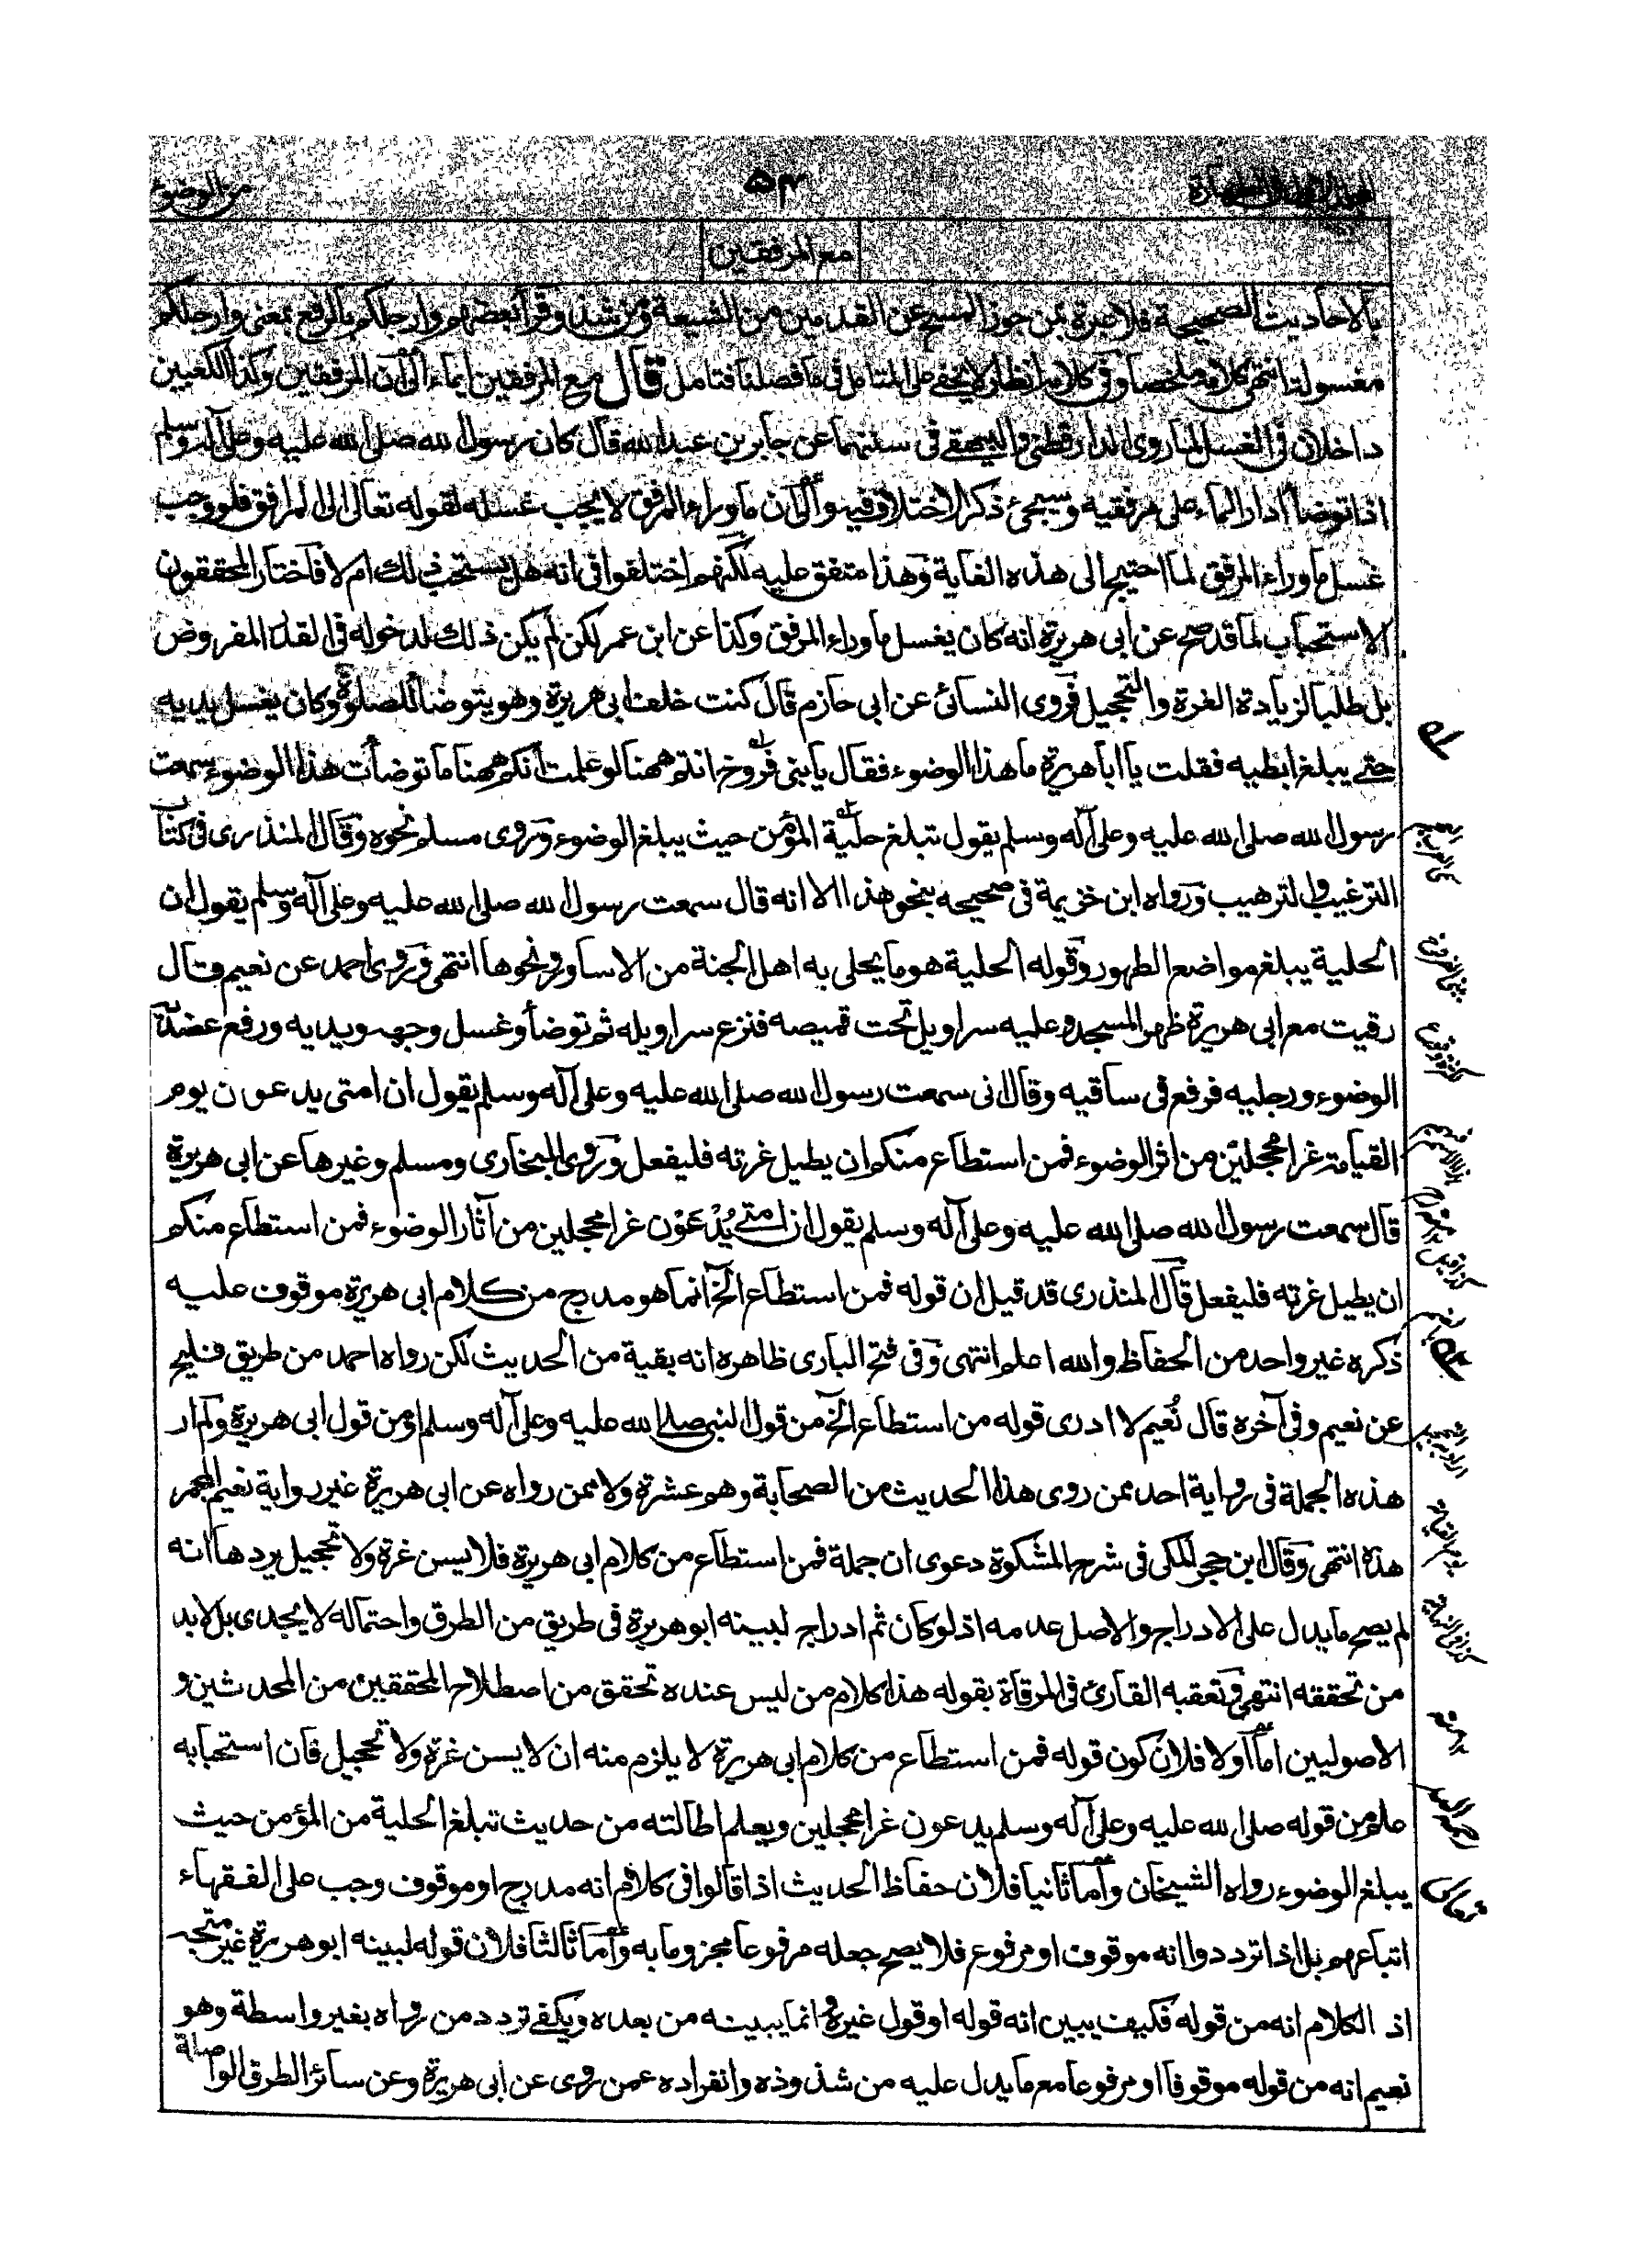 ٥٤
من الوضوء
مع المرفقين
بالاحاديث الصحيحة فلا عبرة بمن جوز المسح عن القدمين من الشيعة ومن شذ وقرأ بعضهم وارجلكم بالرفع بمعنى وارجلكم
مغسولة انتهى كلامه ملخصا وفي كلامه انظار لا يخفى على المتامل في ما فصلنا فتامل قال مع المرفقين ايماء الى ان المرفقين وكذا الكعبين
داخلان في الغسل لما روى الدارقطني والبيهقي في سننهما عن جابر بن عبدالله قال كان رسول الله صلى الله عليه وعلى آله وسلم
اذا توضأ أدار الماء على مرفقيه وسيجئ ذكر الاختلاف فيه والى ان ما وراء المرفق لا يجب غسله لقوله تعالى الى المرافق فلو وجب
غسل ما وراء المرفق لما احتيج الى هذه الغاية وهذا متفق عليه لكنهم اختلفوا في انه هل يستحب ذلك ام لا فاختار المحققون
الاستحباب لما قد صح عن ابي هريرة انه كان يغسل ما وراء المرفق وكذا عن ابن عمر لكن لم يكن ذلك لدخوله في القدر المفروض
بل طلبا لزيادة الغرة والتحجيل فروى النسائي عن ابي حازم قال كنت خلف ابي هريرة وهو يتوضأ للصلوة وكان يغسل يديه
حتى يبلغ ابطيه فقلت يا ابا هريرة ما هذا الوضوء فقال يا بني فروخ انتم ههنا لو علمت انكم ههنا ما توضأت هذا الوضوء سمعت
رسول الله صلى الله عليه وعلى آله وسلم يقول تبلغ حلية المؤمن حيث يبلغ الوضوء وروى مسلم نحوه وقال المنذري في كتاب
الترغيب والترهيب ورواه ابن خزيمة في صحيحه بنحو هذا الا انه قال سمعت رسول الله صلى الله عليه وعلى آله وسلم يقول ان
الحلية يبلغ مواضع الطهور وقوله الحلية هو ما يحلى به اهل الجنة من الاساور ونحوها انتهى وروى احمد عن نعيم قال
رقيت مع ابي هريرة ظهر المسجد وعليه سراويل تحت قميصه فنزع سراويله ثم توضأ وغسل وجهه ويديه ورفع عضديه
الوضوء ورجليه فرفع في ساقيه وقال اني سمعت رسول الله صلى الله عليه وعلى آله وسلم يقول ان امتي يدعون يوم
القيامة غرا محجلين من اثر الوضوء فمن استطاع منكم ان يطيل غرته فليفعل وروى البخاري ومسلم وغيرها عن ابي هريرة
قال سمعت رسول الله صلى الله عليه وعلى آله وسلم يقول ان امتي يُدْعَوْن غرا محجلين من آثار الوضوء فمن استطاع منكم
ان يطيل غرته فليفعل قال المنذري قد قيل ان قوله فمن استطاع الخ انما هو مدرج من كلام ابي هريرة موقوف عليه
ذكره غير واحد من الحفاظ والله اعلم انتهى وفي فتح الباري ظاهره انه بقية من الحديث لكن رواه احمد من طريق فليح
عن نعيم وفي آخره قال نُعيم لا ادري قوله من استطاع الخ من قول النبي صلى الله عليه وعلى آله وسلم او من قول ابي هريرة ولم ار
هذه الجملة في رواية احد ممن روى هذا الحديث من الصحابة وهو عشرة ولا ممن رواه عن ابي هريرة غير رواية نعيم المجمر
هذه انتهى وقال ابن حجر المكي في شرح المشكوة دعوى ان جملة فمن استطاع من كلام ابي هريرة فلا يسن غرة ولا تحجيل يردها انه
لم يصح ما يدل على الادراج والاصل عدمه اذ لو كان ثم ادراج لبينه ابو هريرة في طريق من الطرق واحتماله لا يجدى بل لابد
من تحققه انتهى وتعقبه القارئ في المرقاة بقوله هذا كلام من ليس عنده تحقق من اصطلاح المحققين من المحدثين و
الاصوليين اما اولا فلان كون قوله فمن استطاع من كلام ابي هريرة لا يلزم منه ان لا يسن غرة ولا تحجيل فان استحبابه
علم من قوله صلى الله عليه وعلى آله وسلم يدعون غرا محجلين ويعلم اطالته من حديث تبلغ الحلية من المؤمن حيث
يبلغ الوضوء رواه الشيخان واما ثانيا فلان حفاظ الحديث اذا قالوا في كلام انه مدرج او موقوف وجب على الفقهاء
اتباعهم بل اذا ترددوا انه موقوف او مرفوع فلا يصح جعله مرفوعا مجزوما به واما ثالثا فلان قوله لبينه ابو هريرة غير متجه
اذ الكلام انه من قوله فكيف يبين انه قوله او قول غيره وانما يبينه من بعده ويكفي تردد من رواه بغير واسطة وهو
نعيم انه من قوله موقوفا او مرفوعا مع ما يدل عليه من شذوذه وانفراده عمن روى عن ابي هريرة وعن سائر الطرق الواصلة